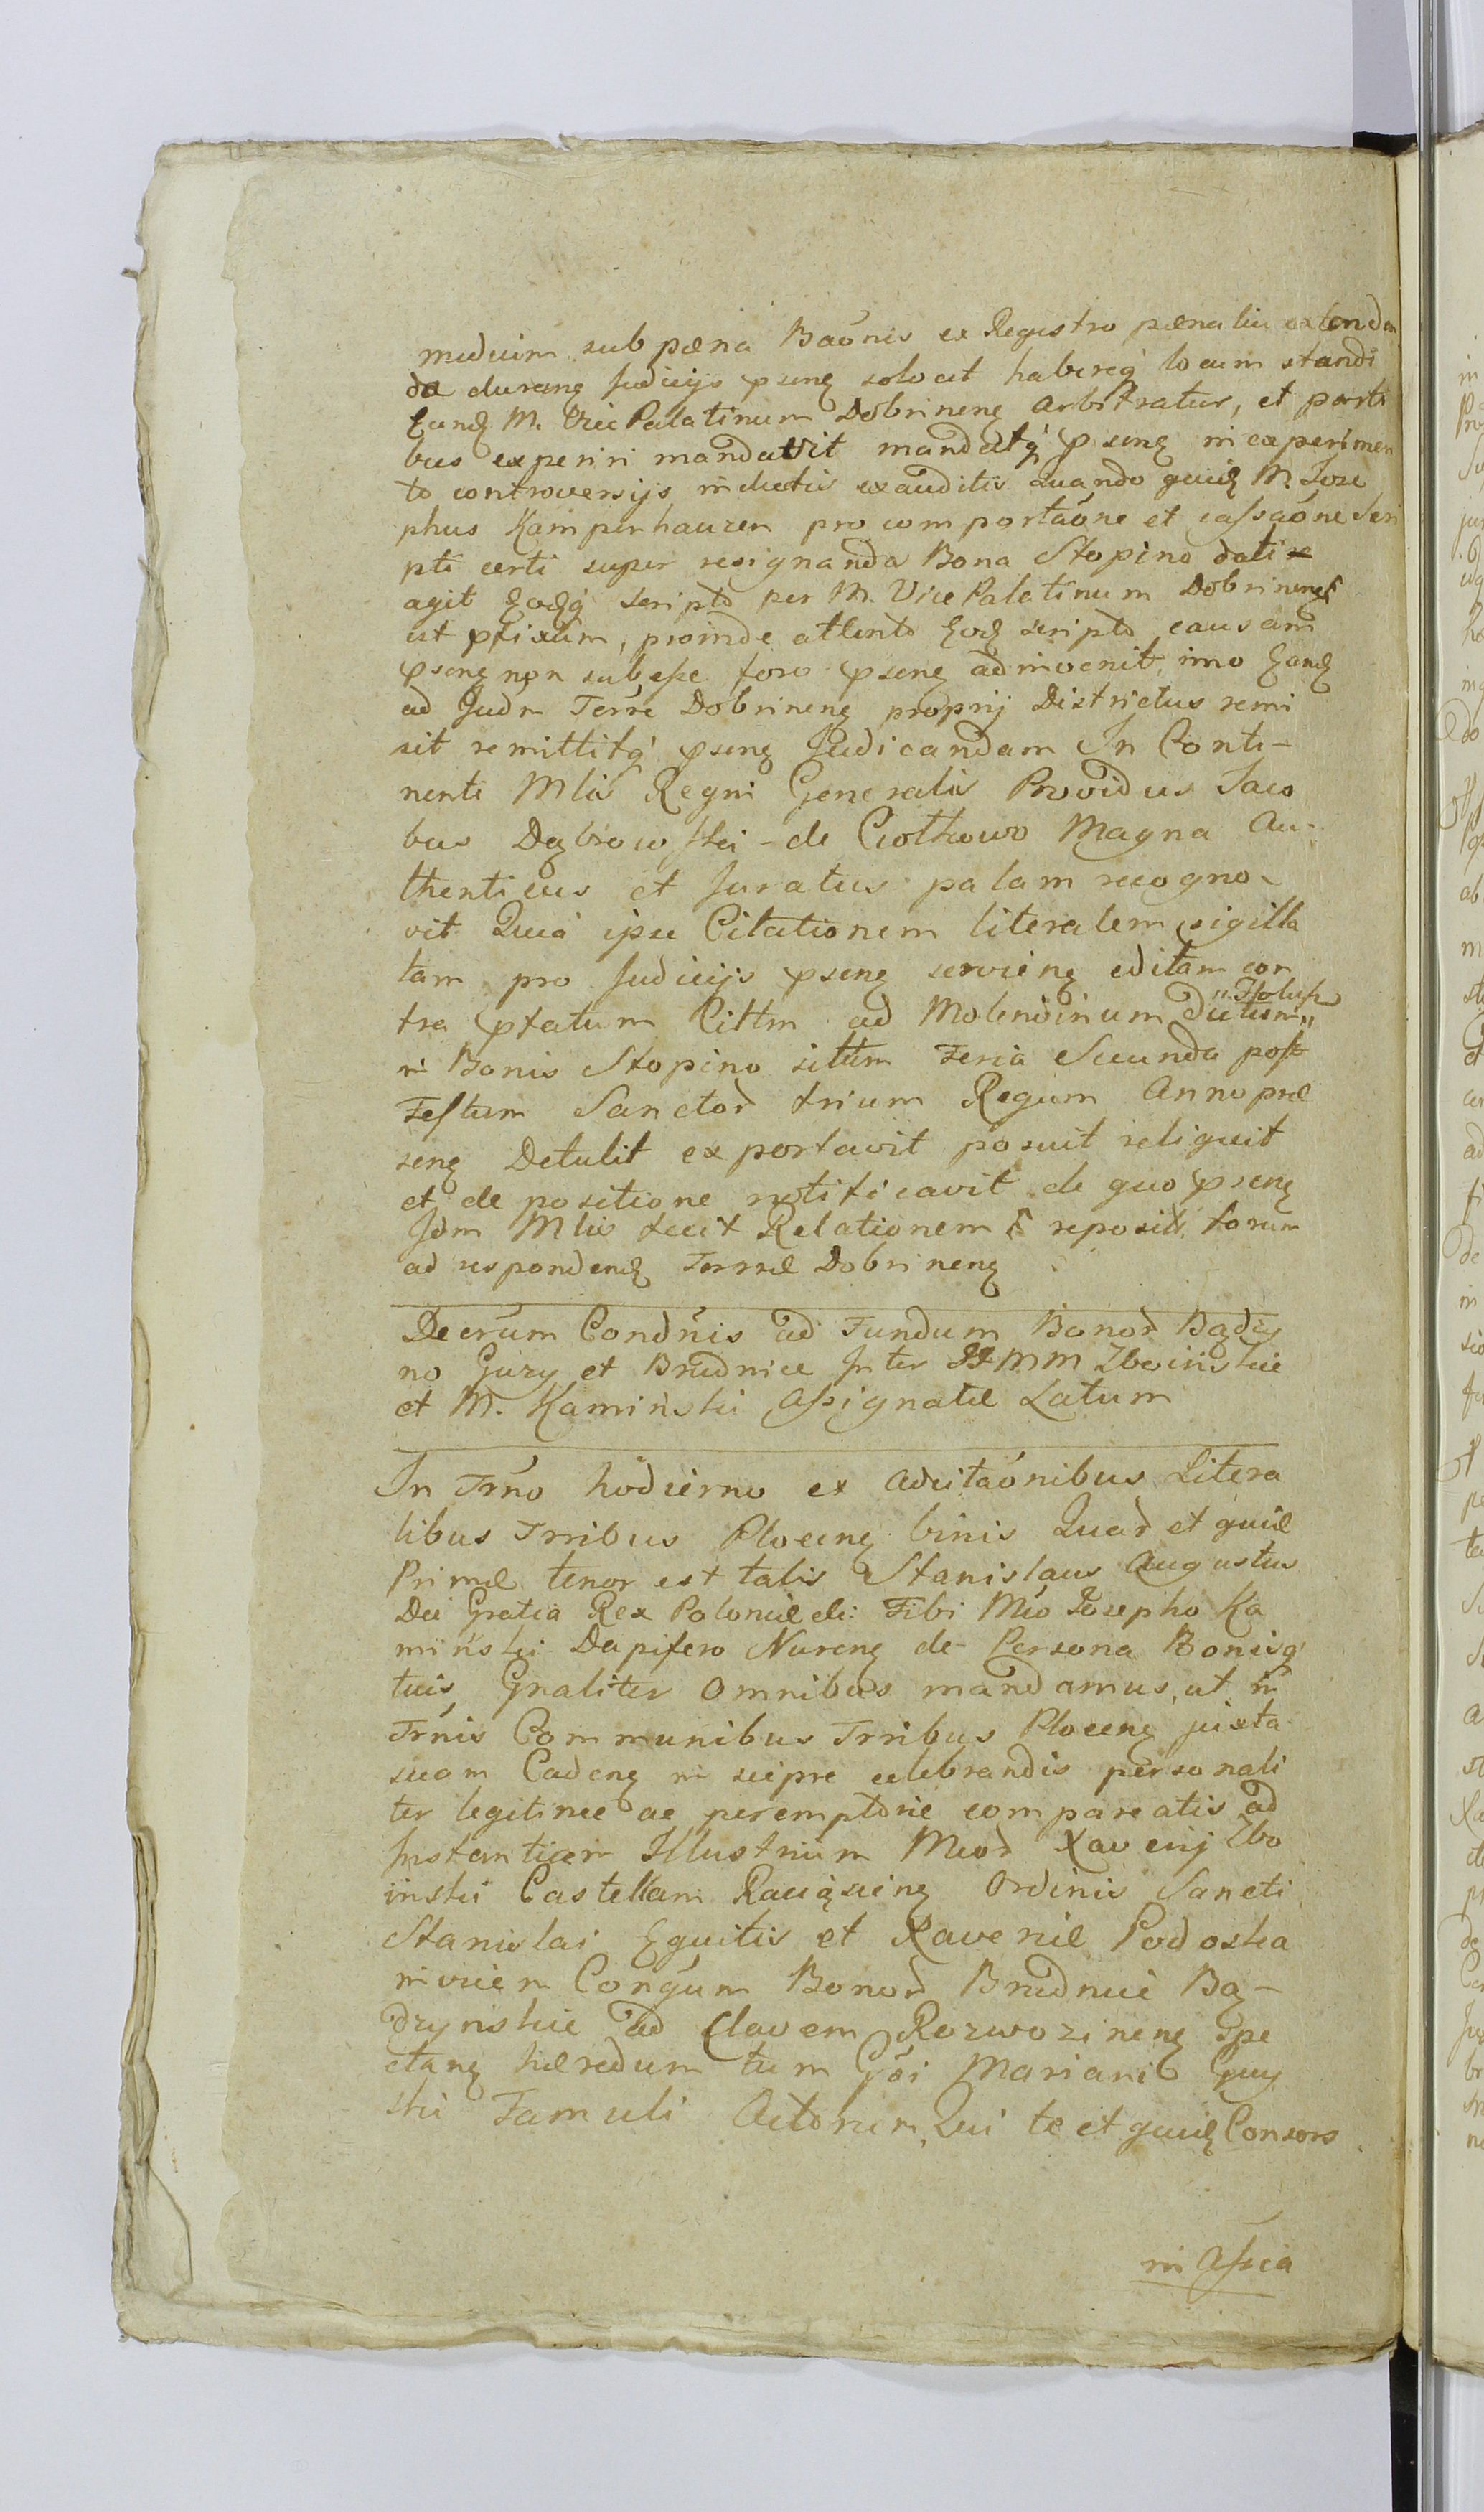 mudium sub pæna Baónis ex Registro pænaliu extenden
da durang Judicijs pseng solvat habereq́ locum standi
Eund M. Vice Palatinum Dobrineng arbitratur, et parti
bus experiri mandavit mandatq́ pseng in experimen
to controversijs inductis exauditis Quando quid M. Jose
phus Kamperhauzen pro comportaóne et cassaóne Scri
pti certi super resignanda Bona Stopino dati
agit Eodq́ scripto per M. Vice Palatinum Dobrineng
est pfixum, proinde attento Eod scripto causam
pseng non subesse foro pseng adinvenit, imo Eand
ad Judm Terre Dobrineng proprij Districtus remi
sit remittitq́ pseng Judicandam In Conti-
nenti Mlis Regni Generalis Providus Jaco
bus Dąbrowski de Ciołkowo Magna Au-
thenticus et Juratus palam recogno-
vit Quia ipse Citationem literalem sigilla
tam pro Judicijs pseng servieng editam con
tra pfatum Cittm ad Molendinum Dictum "Holusz"
in Bonis Stopino sittm Feria Secunda post
Festum Sanctor trium Regum Anno præ
seng Detulit exportavit posuit reliquit
et de positione notificavit de quo pseng
Idm Mlis fecit Relationem reposit forum
ad respondend Terræ Dobrineng
Decrúm Condńis ad Fundum Bonor Bądzy
no Guzy et Brudnice Inter II MM Zboińskie
et M. Kamiński Assignatæ Latum
In Trńo hodierno ex Adcitaónibus Litera
libus Trribus Ploceng binis Quar et quid
Primæ tenor est talis Stanislaus Augustus
Dei Gratia Rex Poloniæ etc: Tibi Mco Josepho Ka
miński Dapifero Nureng de Persona Bonisq́
tuis Gnaliter omnibus mandamus, ut in
Trńis Communibus Trribus Ploceng juxta
suam Cadeng in seipre celebrandis personali
ter legitime ac peremptorie compareatis ad
Instantiam Illustrium Mcor Xaverij Zbo
inski Castellani Raciązieng Ordinis Sancti
Stanislai Equitis et Xaveriæ Podoska
invicem Congúm Bonor Brudnice Bą-
drynskie ad Clavem Rozwozineng Spe
ctang hæredum tum Gói Mariani Guy
ski Famuli Actorum, Qui te et quid Consors
in Assia